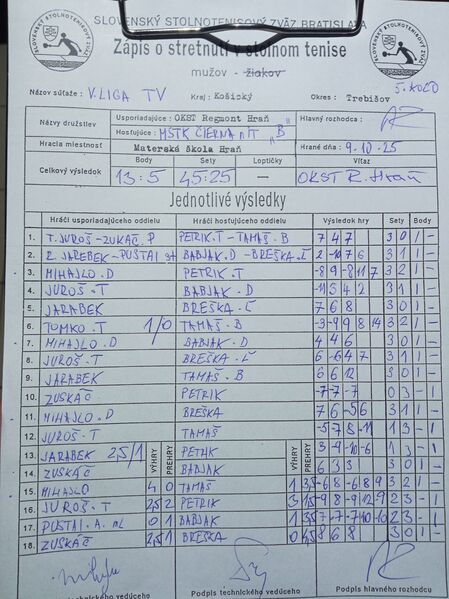 SLOVENSKÝ STOLNOTENISOVÝ ZVÄZ BRATISLAVA
Zápis o stretnutí v stolnom tenise
mužov - žiakov
5. KOLO
Názov súťaže : V. LIGA TV Kraj : Košický Okres : Trebišov
Názvy družstiev Usporiadajúce : OKST Regmont Hraň Hlavný rozhodca :
Hosťujúce : MSTK ČIERNA n/T "B"
Hracia miestnosť Materská škola Hraň Hrané dňa : 9.10.25
Celkový výsledok Body Sety Loptičky Víťaz
13:5 45:25 — OKST R. Hraň
Jednotlivé výsledky
Hráči usporiadajúceho oddielu Hráči hosťujúceho oddielu Výsledok hry Sety Body
1. T. JUROŠ - ZUKÁČ. P PETRIK.T - TAMÁŠ.B 7 4 7 3 0 1 -
2. JARABEK - PUŠTAI st BABJAK.D - BREŠKA.Ľ 2 -10 7 6 3 1 1 -
3. MIHAJLO.D PETRIK.T -8 9 -8 11 7 3 2 1 -
4. JUROŠ.T BABJAK.D -11 5 4 2 3 1 1 -
5. JARABEK BREŠKA.Ľ 7 6 8 3 0 1 -
6. TOMKO.T 1/0 TAMÁŠ.B -3 -9 9 8 14 3 2 1 -
7. MIHAJLO.D BABJAK.D 4 4 6 3 0 1 -
8. JUROŠ.T BREŠKA.Ľ 6 -6 4 7 3 1 1 -
9. JARABEK TAMÁŠ.B 6 6 12 3 0 1 -
10. ZUSKÁČ PETRIK -7 -7 -7 0 3 - 1
11. MIHAJLO.D BREŠKA 7 6 -5 6 3 1 1 -
12. JUROŠ.T TAMÁŠ -5 7 -8 -11 1 3 - 1
13. JARABEK 2,5/1 VÝHRY PREHRY VÝHRY PREHRY 3 -9 -10 -6 1 3 - 1
14. ZUSKÁČ BABJAK 6 3 3 3 0 1 -
15. MIHAJLO 4 0 TAMÁŠ 1 3,5 -6 8 -6 8 9 3 2 1 -
16. JUROŠ.T 2,5 2 PETRIK 3 1,5 -9 8 -9 12 -9 2 3 - 1
17. PUŠTAI.A. ml 0 1 BABJAK 1 3,5 -7 -7 7 10 -10 2 3 - 1
18. ZUSKÁČ 2,5 1 BREŠKA 0 4,5 8 6 8 3 0 1 -
Podpis technického vedúceho Podpis hlavného rozhodcu